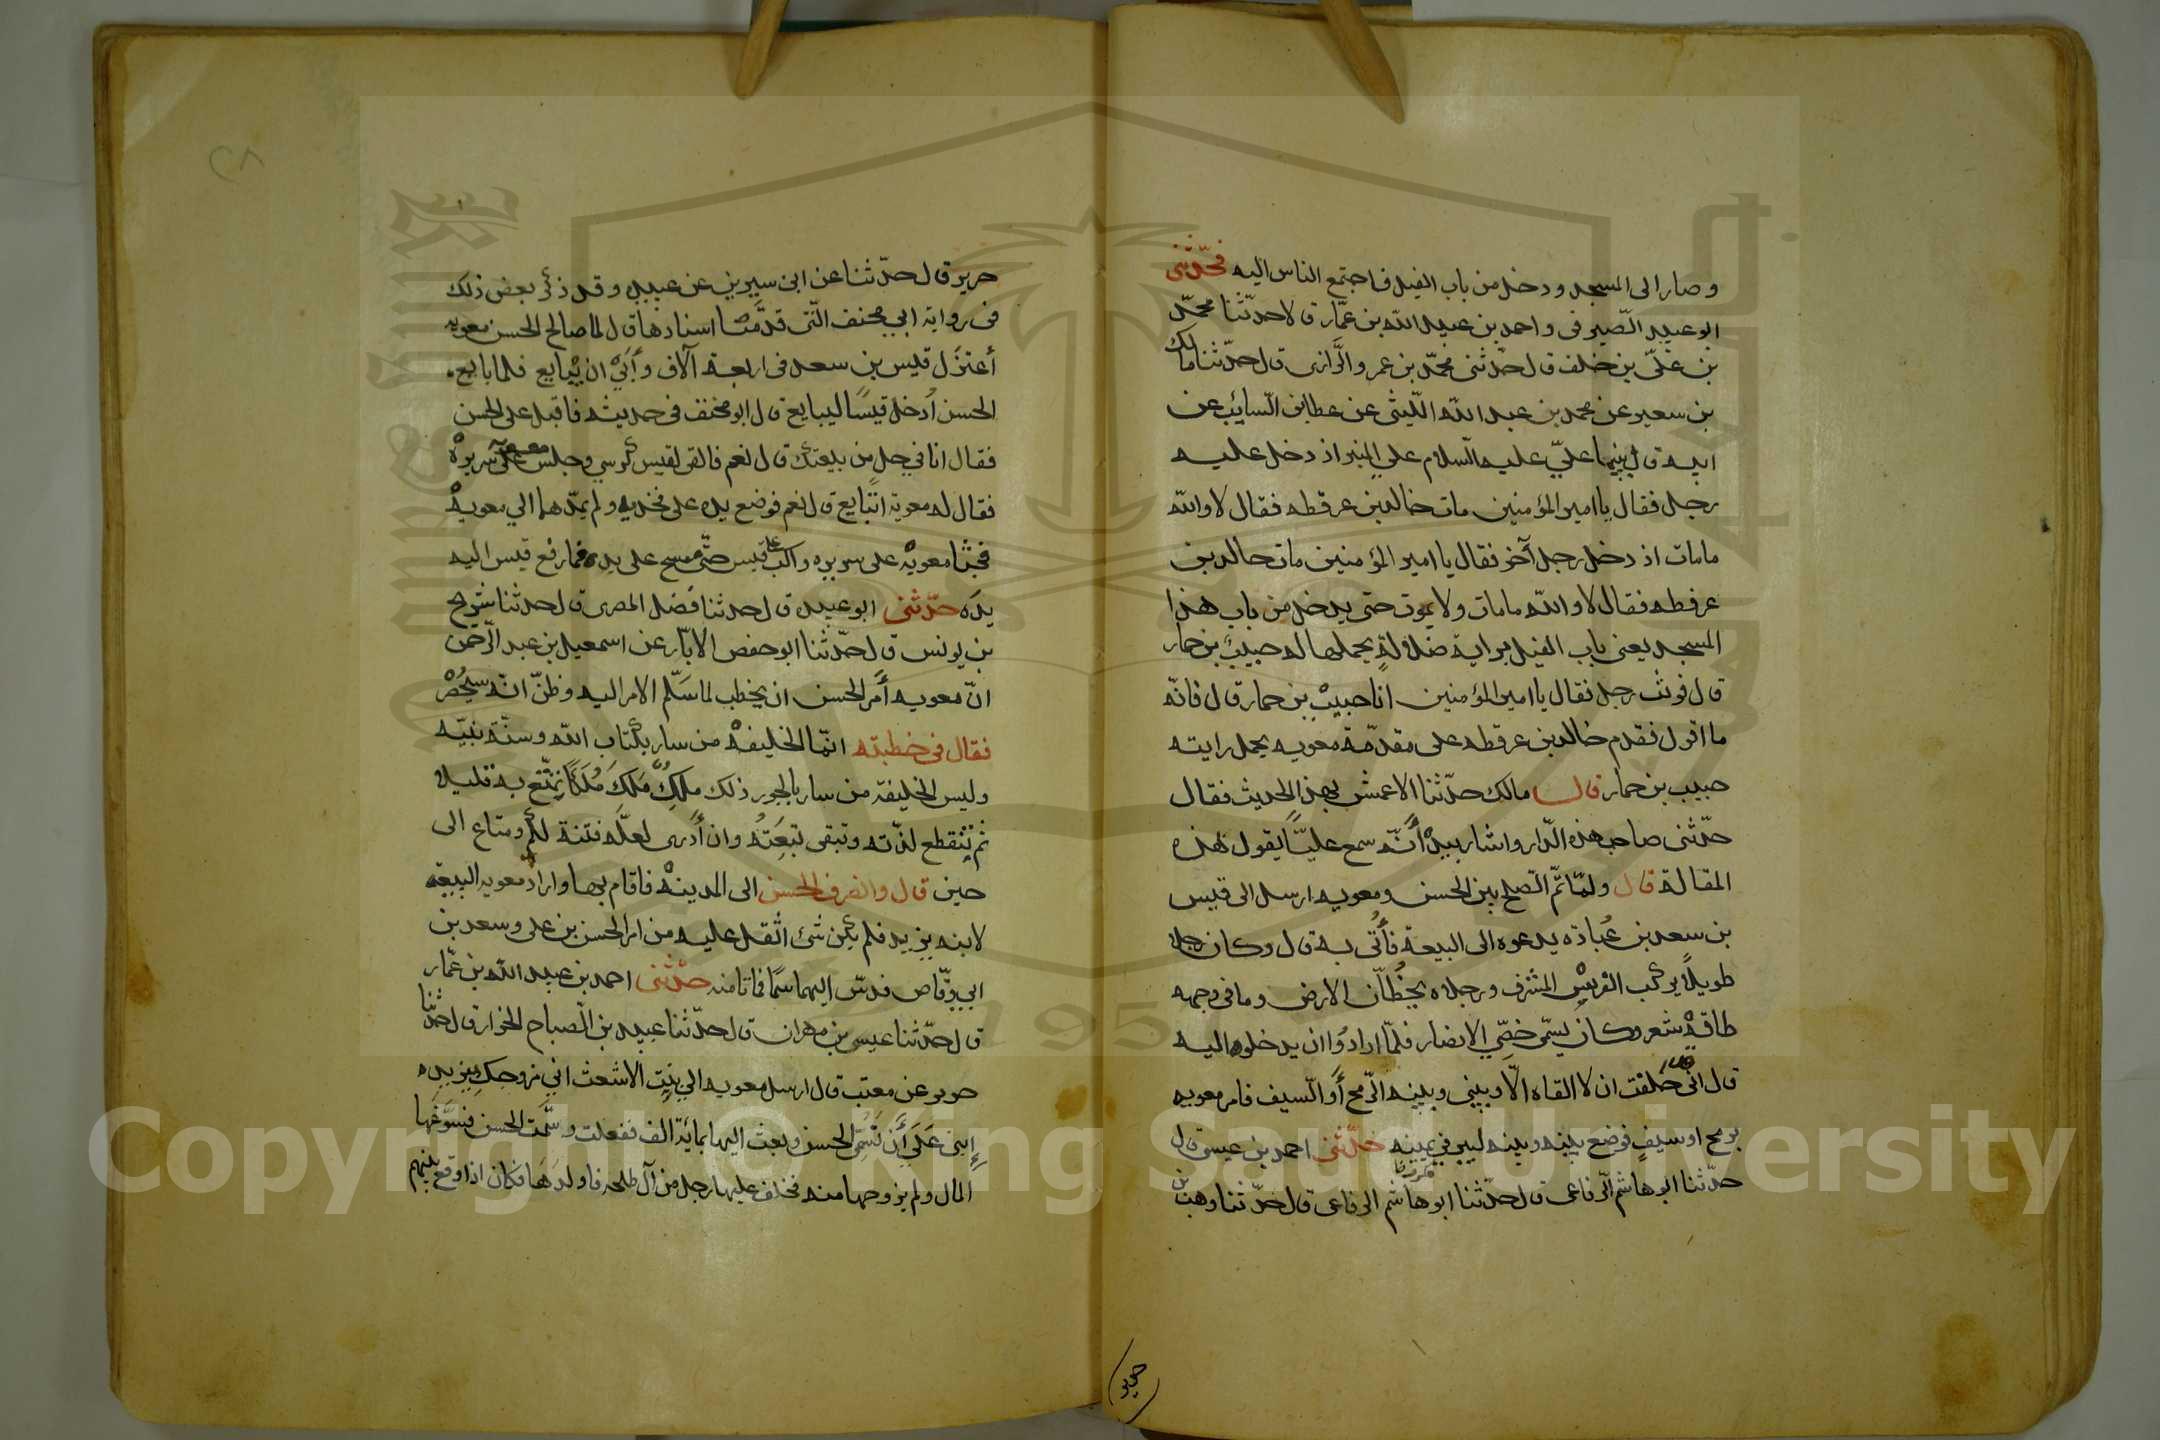 وصار الى المسجد ودخل من باب الفيل فاجتمع الناس اليه فحدّثنى
ابو عبيد الصّيرفى واحمد بن عبيد الله بن عمّار قالا حدّثنا محمّد
بن علىّ بن خلف قال حدّثنى محمّد بن عمرو الرّازى قال حدّثنا مالك
بن سعير عن محمد بن عبد الله اللّيثى عن عطا بن السّايب عن
ابيه قال بينما علىّ عليه السّلام على المنبر اذ دخل عليه
رجل فقال يا امير المؤمنين مات خالد بن عرفطه فقال لا والله
مامات اذ دخل رجل آخر فقال يا امير المؤمنين مات خالد بن
عرفطه فقال لا والله مامات ولا يموت حتى يدخل من باب هذا
المسجد يعنى باب الفيل براية ضلالةٍ يحملها له حبيب بن حمار
قال فوثب رجل فقال يا امير المؤمنين انا حبيب بن حمار قال فانّه
ما اقول فقدم خالد بن عرفطه على مقدّمة معويه يحمل رايته
حبيب بن حمار قال مالك حدّثنا الاعمش بهذا الحديث فقال
حدّثنى صاحب هذه الدّار واشار بيده أنّه سمع عليّا يقول هذه
المقالة قال ولمّا تمّ الصّلح بين الحسن ومعويه ارسل الى قيس
بن سعد بن عُبادَه يدعوه الى البيعة فأُتى به قال وكان رجلا
طويلاً يركب الفرس المشرف ورجلاه يخُطّان الارض وما فى وجهه
طاقة شعر وكان يسمّى خصّى الانصار فلمّا ارادوُا ان يدخلوه اليه
قال انى حلفت ان لا القاه الّا وبينى وبينه الرّمح أو السّيف فامر معويه
برمح او سيفٍ فوضع بينه وبينه ليبر فى يمينه حدّثنى احمد بن عيسى قال
حدّثنا ابو هاشم الرّفاعى قال حدّثنا ابو هاشم الرفاعى قال حدّثنا وهب بن
جرير
حرير قال حدّثنا عن ابن سيرين عن عبيده وقد ذكر بعض ذلك
فى رواية ابي مخنف الّتى قدّمتُ اسنادها قال لما صالح الحسن معويه
أعتزل قيس بن سعد فى اربعة آلاف وأبى ان يبايع فلما بايع
الحسن اُدخل قيسًا ليبايع قال ابو مخنف فى حديثه فاقبل على الحسن
فقال انا في حل من بيعتك قال نعم فالقى لقيس كرسي وجلس معويه على سريره
فقال له معوية اتبايع قال نعم فوضع يده على فخذيه ولم يمدّها الي معوية
فجثا معويه على سريره واكب على قيس حتّى مسح على يده فما رفع قيس اليه
يدَه حدّثنى ابو عبيد قال حدثنا فضل المصرى قال حدثنا شريح
بن يونس قال حدّثنا ابو حفص الابّار عن اسمعيل بن عبد الرّحمن
انّ معويه أمر الحسن ان يخطب لما سَلّم الامر اليه وظنّ انّه سيحُصر
فقال فى خطبته انّما الخليفة من سار بكتاب الله وسنّة نبيّه
وليس الخليفة من سار بالجور ذلك ملكٌ مَلكَ مُلكًا يتمتّع به قليلا
ثم تنقطع لذّته وتبقى تبعتُه وان أدرى لعلّه فتنة لكم ومتاع الى
حين قال وانصرف الحسن الى المدينة فاقام بها واراد معويه البيعة
لابنه يزيد فلم يكن شئ اثقل عليه من امر الحسن بن على وسعد بن
ابي وقّاص فدسّ إليهما سمًا فماتا منه حدّثنى احمد بن عبيد الله بن عمّار
قال حدّثنا عيسى بن مهران قال حدّثنا عبيد بن الصّباح الخراز قال حدّثنا
جرير عن مغيره قال ارسل معويه الي بنت الاشعث اني مزوجك يزيد
إبنى عَلى أن تَسُمّى الحسن وبعث اليها بمائة الف ففعلت وسّمت الحسن فسوّغها
المال ولم يزوجها منه فخلف عليها رجل من آل طلحه فاولدها فكان اذا وقع بينهم
٢٨
Copyright © King Saud University
1957